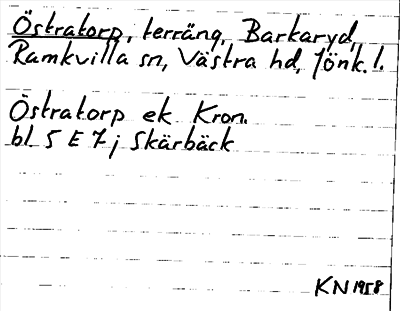 Östratorp, terräng, Barkaryd,
Ramkvilla sn, Västra hd, Jönk. l.
Östratorp ek Kron.
bl 5 E 7 j Skärbäck
KN 1958